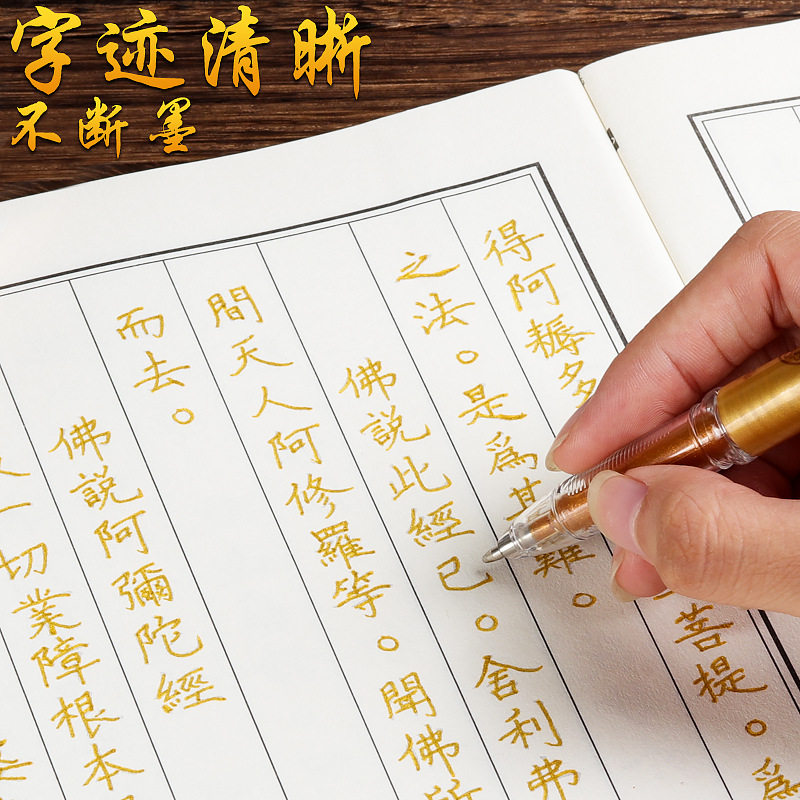 字迹清晰
不断墨
得阿耨多菩提。為
之法。是為甚難。
佛說此經已。舍利弗
間天人阿修羅等。聞佛所
而去。
佛說阿彌陀經
一切業障根本